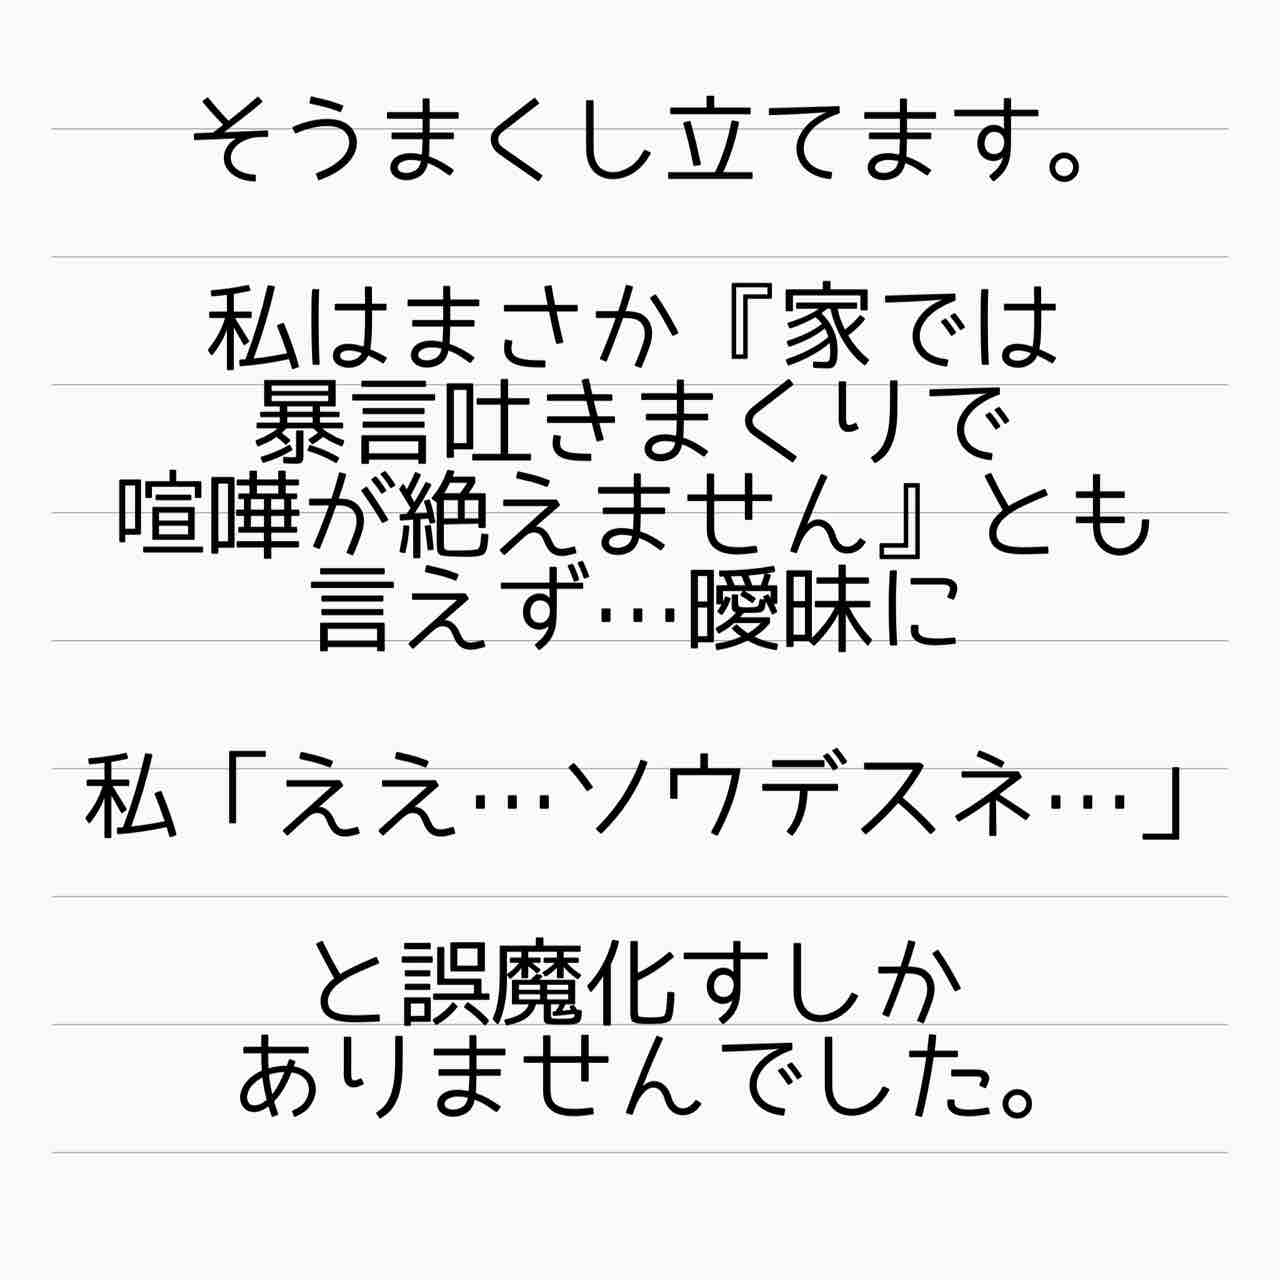 そうまくし立てます。
私はまさか『家では
暴言吐きまくりで
喧嘩が絶えません』とも
言えず…曖昧に
私「ええ…ソウデスネ…」
と誤魔化すしか
ありませんでした。